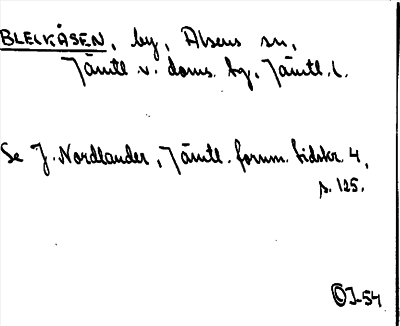 BLECKÅSEN, by, Alsens sn,
Jämtl. v. doms. tg, Jämtl. l.
Se J. Nordlander, Jämtl. fornm. tidskr. 4,
s. 125.
OJ-54